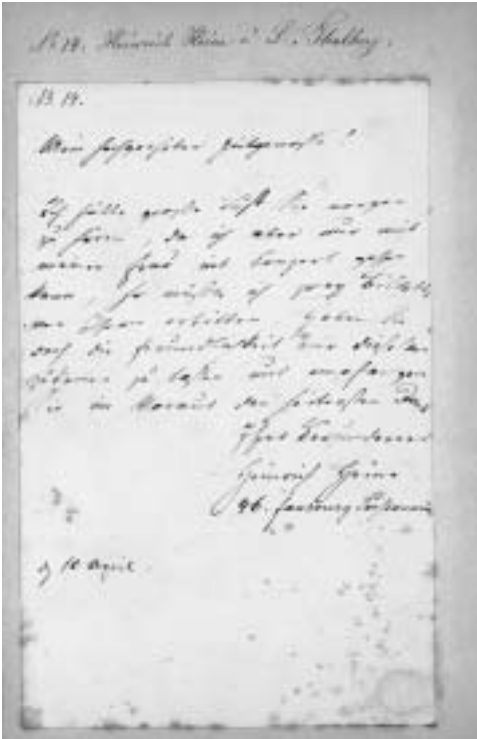 No 14. Heinrich Heine a S. Thalberg.
No. 14.
Mein hochgeehrter Zeitgenosse!
Ich hätte große Lust Sie morgen
zu hören, da ich aber nur mit
meiner Frau ins Conzert gehen
kann, so müßte ich zwey Billette
von Ihnen erbitten. Haben Sie
doch die Freundlichkeit mir dieselben
zukommen zu lassen und empfangen
Sie im Voraus den
Ihres
Heinrich Heine
46. faubourg Poissonnière
10 April.